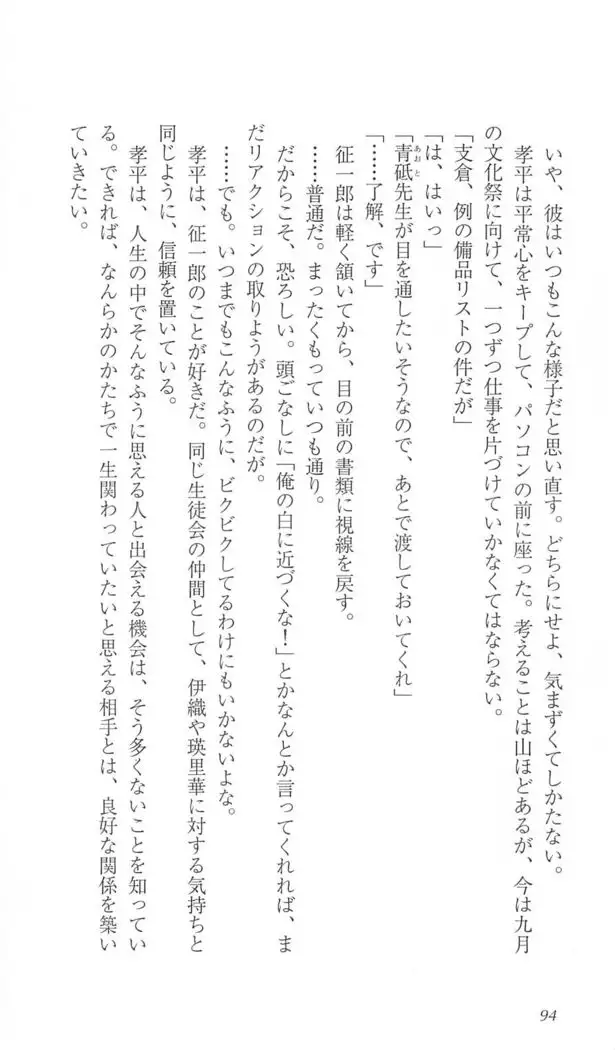 いや、彼はいつもこんな様子だと思い直す。どちらにせよ、気まずくてしかたない。
孝平は平常心をキープして、パソコンの前に座った。考えることは山ほどあるが、今は九月
の文化祭に向けて、一つずつ仕事を片づけていかなくてはならない。
「支倉、例の備品リストの件だが」
「は、はいっ」
「青砥先生が目を通したいそうなので、あとで渡しておいてくれ」
あおと
「……了解、です」
征一郎は軽く頷いてから、目の前の書類に視線を戻す。
……普通だ。まったくもっていつも通り。
だからこそ、恐ろしい。頭ごなしに「俺の白に近づくな！」とかなんとか言ってくれれば、ま
だリアクションの取りようがあるのだが。
……でも。いつまでもこんなふうに、ビクビクしてるわけにもいかないよな。
孝平は、征一郎のことが好きだ。同じ生徒会の仲間として、伊織や瑛里華に対する気持ちと
同じように、信頼を置いている。
孝平は、人生の中でそんなふうに思える人と出会える機会は、そう多くないことを知ってい
る。できれば、なんらかのかたちで一生関わっていたいと思える相手とは、良好な関係を築い
ていきたい。
94